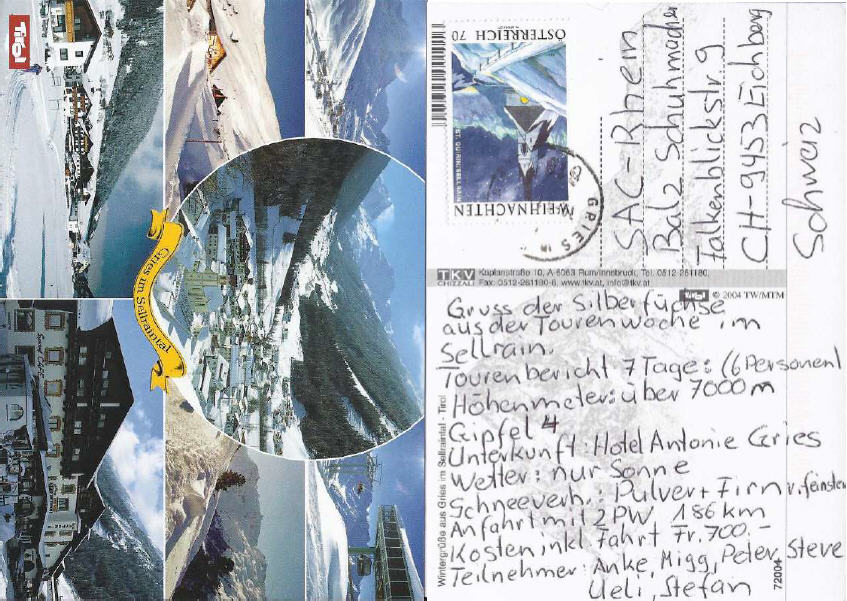 Tirol
Gries im Sellraintal
ÖSTERREICH 70
ST. QUIRIN, SELLRAIN
WEIHNACHTEN
GRIES IM
SAC-Rhein
Balz Schuhmacher
Falkenblickstr 9
CH-9453 Eichberg
Schweiz
TKV Kaplanstraße 10, A-6063 Rum/Innsbruck, Tel. 0512-261180,
CHIZZALI Fax: 0512-261180-6, www.tkv.at, info@tkv.at
Tirol © 2004 TW/MTM
Gruss der Silberfüchse
aus der Tourenwoche im
Sellrain.
Tourenbericht 7 Tage: (6 Personen)
Höhenmeter: über 7000 m
Gipfel 4
Unterkunft: Hotel Antonie Gries
Wetter: nur Sonne
Schneeverh.: Pulver + Firn v. feinsten
Anfahrt mit 2 PW 186 km
Kosten inkl. Fahrt Fr. 700.-
Teilnehmer: Anke, Migg, Peter, Steve
Ueli, Stefan
Wintergrüße aus Gries im Sellraintal - Tirol
72004